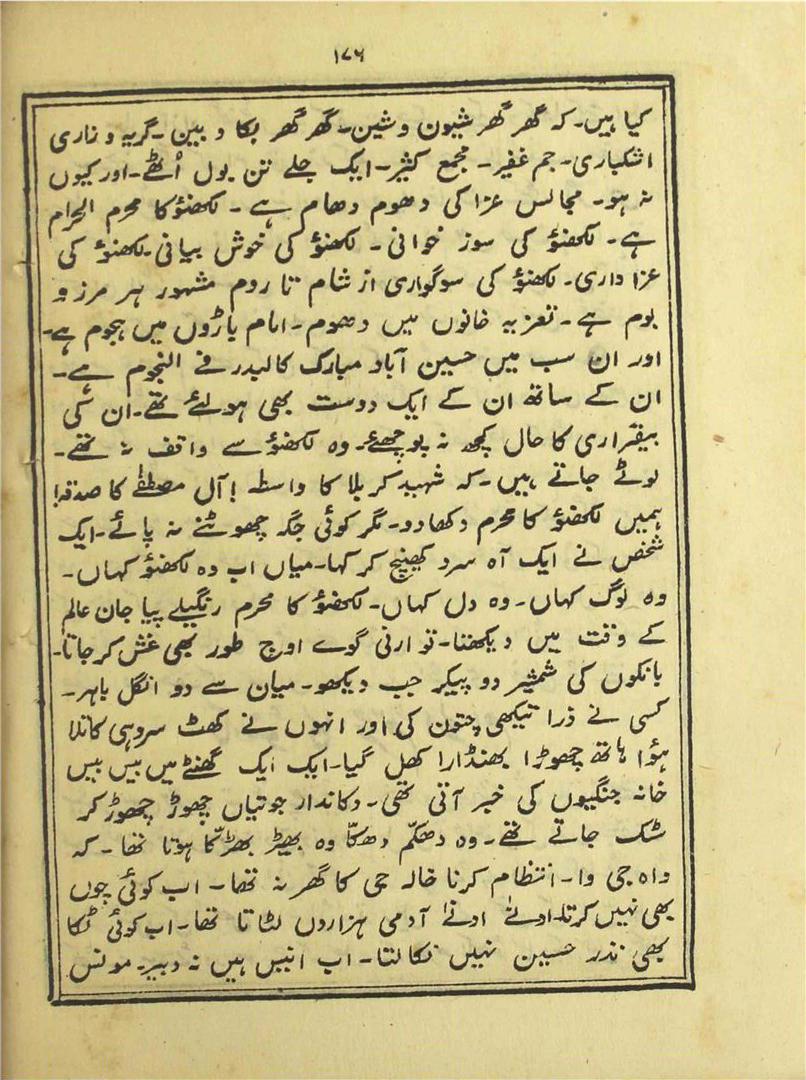 ۱۷۶
کیا ہیں۔ کہ گھر گھر شیون و شین۔ گھر گھر بکا و بین۔ گریہ و زاری
اشکباری۔ جم غفیر۔ مجمع کثیر۔ ایک چلے تن بول اُٹھے۔ اور کیوں
نہ ہو۔ مجالس عزا کی دھوم دھام ہے۔ لکھنؤ کا محرم الحرام
ہے۔ لکھنؤ کی سوز خوانی۔ لکھنؤ کی خوش بیانی۔ لکھنؤ کی
عزا داری۔ لکھنؤ کی سوگواری از شام تا روم مشہور ہر مرز و
بوم ہے۔ تعزیہ خانوں میں دھوم۔ امام باڑوں میں ہجوم ہے۔
اور ان سب میں حسین آباد مبارک کالبدر فے النجوم ہے۔
ان کے ساتھ ان کے ایک دوست بھی ہولئے تھے۔ ان کی
بیقراری کا حال کچھ نہ پوچھئے۔ وہ لکھنؤ سے واقف نہ تھے۔
لوٹے جاتے ہیں۔ کہ شہید کربلا کا واسطہ! آل مصطفٰے کا صدقہ!
ہمیں لکھنؤ کا محرم دکھادو۔ مگر کوئی جگہ چھوٹنے نہ پائے۔ ایک
شخص نے ایک آہ سرد کھینچ کر کہا۔ میاں اب وہ لکھنؤ کہاں۔
وہ لوگ کہاں۔ وہ دل کہاں۔ لکھنؤ کا محرم رنگیلے پیا جان عالم
کے وقت میں دیکھنا۔ تو ارنی گوے اوج طور بھی غش کر جاتا۔
بانکوں کی شمشیر دو پیکر جب دیکھو۔ میان سے دو انگل باہر۔
کسی نے ذرا تیکھی چتون کی اور انہوں نے کھٹ سروہی کا تلا
ہؤا ہاتھ چھوڑا بھنڈارا کھل گیا۔ ایک ایک گھنٹے میں بیس بیس
خانہ جنگیوں کی خبر آتی تھی۔ دکاندار جوتیاں چھوڑ چھوڑ کر
سٹک جاتے تھے۔ وہ دھکم دھکا وہ بھیڑ بھڑکا ہوتا تھا۔ کہ
واہ جی وا۔ انتظام کرنا خالہ جی کا گھر نہ تھا۔ اب کوئی چوں
بھی نہیں کرتا۔ ادنٰے ادنٰے آدمی ہزاروں لٹاتا تھا۔ اب کوئی ٹکا
بھی نذر حسین نہیں نکالتا۔ اب انیس ہیں نہ دبیر۔ مونس